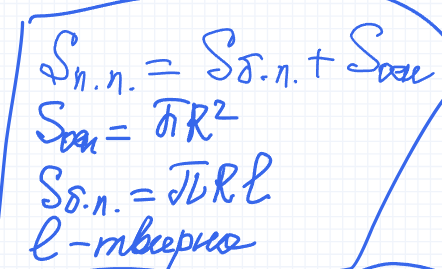 Sп.п. = Sб.п. + Sосн
Sосн = πR²
Sб.п. = πRl
l - твирна